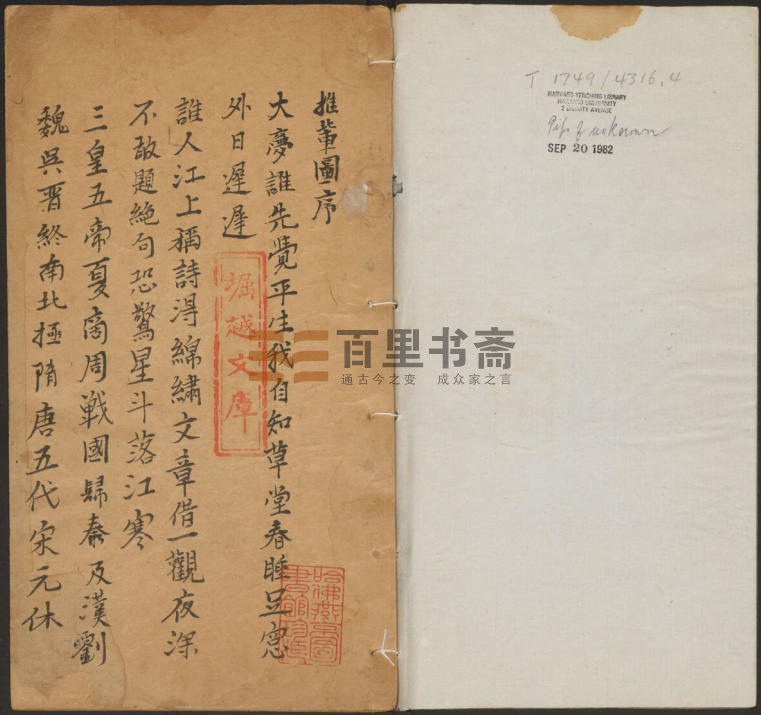 推輩圖序
大夢誰先覺平生我自知草堂春睡足窓
外日遲遲
誰人江上稱詩淂綿繡文章借一觀夜深
不敢題絶句恐驚星斗落江寒
三皇五帝夏商周戰國歸秦及漢劉
魏吳晋終南北極隋唐五代宋元休
堀越文庫
哈佛燕京圖書館珍藏
百里书斋
通古今之变 成众家之言
T 1749/4316.4
HARVARD-YENCHING LIBRARY
HARVARD UNIVERSITY
2 DIVINITY AVENUE
Gift of unknown
SEP 20 1982